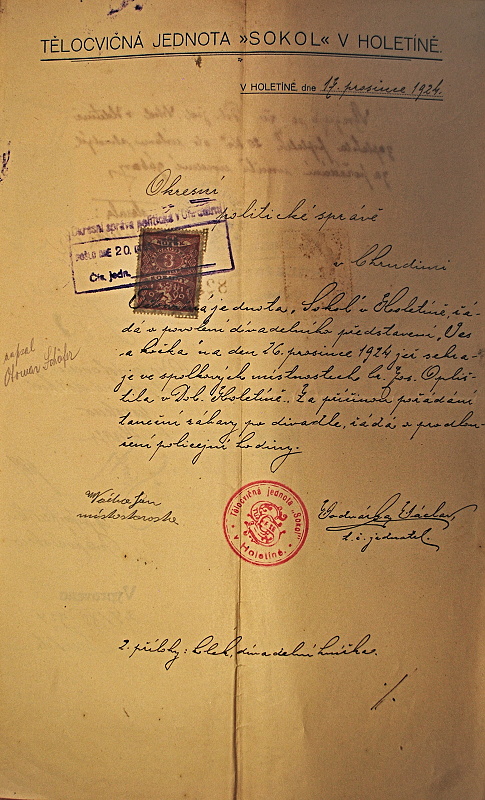 TĚLOCVIČNÁ JEDNOTA »SOKOL« V HOLETÍNĚ.
V HOLETÍNĚ, dne 17. prosince 1924.
Okresní
politické správě
v Chrudimi
Okresní správa politická v Chrudimi
došlo dne 20.
Čís. jedn.
3
jednota „Sokol“ v Holetíně, žá-
dá o povolení divadelního představení „Pes
a kočka“ na den 26. prosince 1924 jež sehra-
je ve spolkových místnostech
v Dol. Holetíně. Za příčinou pořádání
taneční zábavy po divadle, žádá o prodlou-
žení policejní hodiny.
napsal
Vácha Jan
místostarosta
Tělocvičná jednota „Sokol“
Holetíně.
Vodvárka Václav,
t. č. jednatel.
2 přílohy: kolek, divadelní knížka.